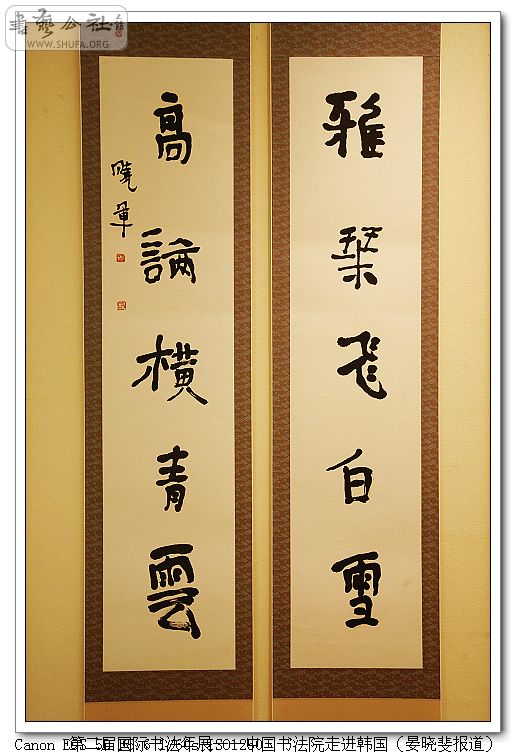 書藝公社
WWW.SHUFA.ORG
雅琹飛白雪
高論橫青雲
曉軍
Canon EOS 5D
第二届国际书法年展 中国书法院走进韩国（晏晓斐报道）